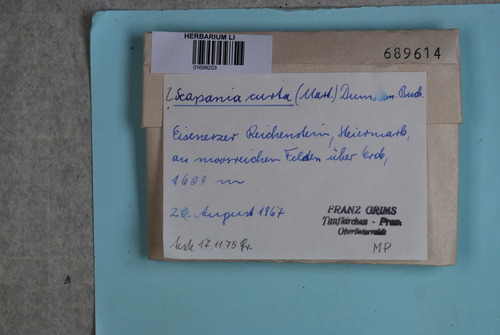 HERBARIUM LI
01699203
689614
Scapania curta (Mart.) Dum. m. Buch.
Eisenerzer Reichenstein, Steiermark,
an moosreichen Felden über Erde,
1600 m
20. August 1967
FRANZ GRIMS
Taufkirchen - Pram
Oberösterreich
17.11.75 Gr.
MP